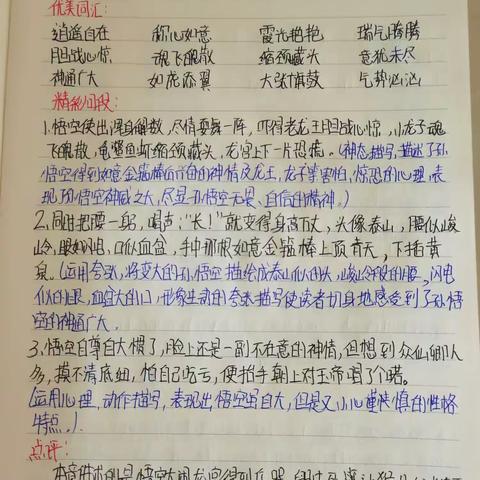 优美词汇:
逍遥自在 称心如意 霞光艳艳 瑞气腾腾
胆战心惊 魂飞魄散 缩颈藏头 意犹未尽
神通广大 如虎添翼 大张旗鼓 气势汹汹
精彩词段:
1.悟空使出浑身解数,尽情耍舞一阵,吓得老龙王胆战心惊,小龙子魂
飞魄散,龟鳖鱼虾缩颈藏头,龙宫上下一片恐慌。(神态描写,描述了孙
悟空得到如意金箍棒后的神情及龙王,龙子等害怕,惊恐的心理,表
现了孙悟空神威之大,尽显孙悟空无畏、自信的精神。)
2.同时把腰一躬,喝声:“长!”就变得身高万丈,头像泰山,腰似峻
岭,眼如闪电,口似血盆,手中那根如意金箍棒上顶青天,下插黄
泉。(运用夸张,将变大的孙悟空描绘成泰山似的头,峻岭般的腰,闪电
似的眼,血盆大的口,形象生动的夸张描写使读者切身地感受到了孙悟
空的神通广大。
3.悟空自尊自大惯了,脸上还是一副不在意的神情,但想到众仙卿人
多,摸不清底细,怕自己吃亏,便拍手朝上对玉帝唱了个喏。
(运用心理,动作描写,表现出悟空妄自大,但是又小心谨慎的性格
特点。)
点评: